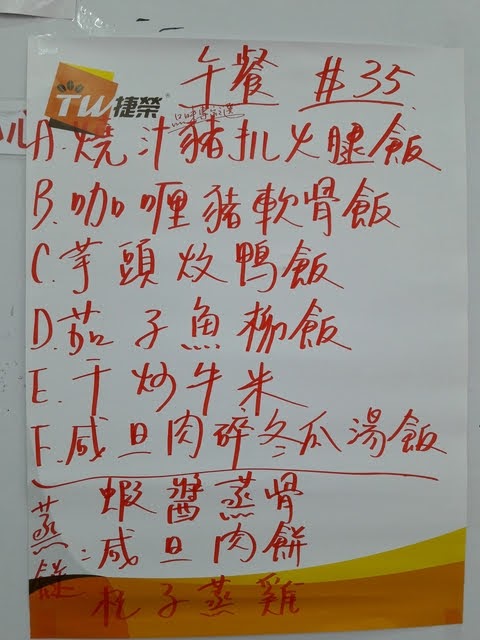 午餐 #35
TW捷榮®
A.燒汁豬扒火腿飯
B.咖喱豬軟骨飯
C.芋頭炆鴨飯
D.茄子魚柳飯
E.干炒牛米
F.咸旦肉碎冬瓜湯飯
蝦醬蒸骨
蒸 : 咸旦肉餅
杞子蒸雞